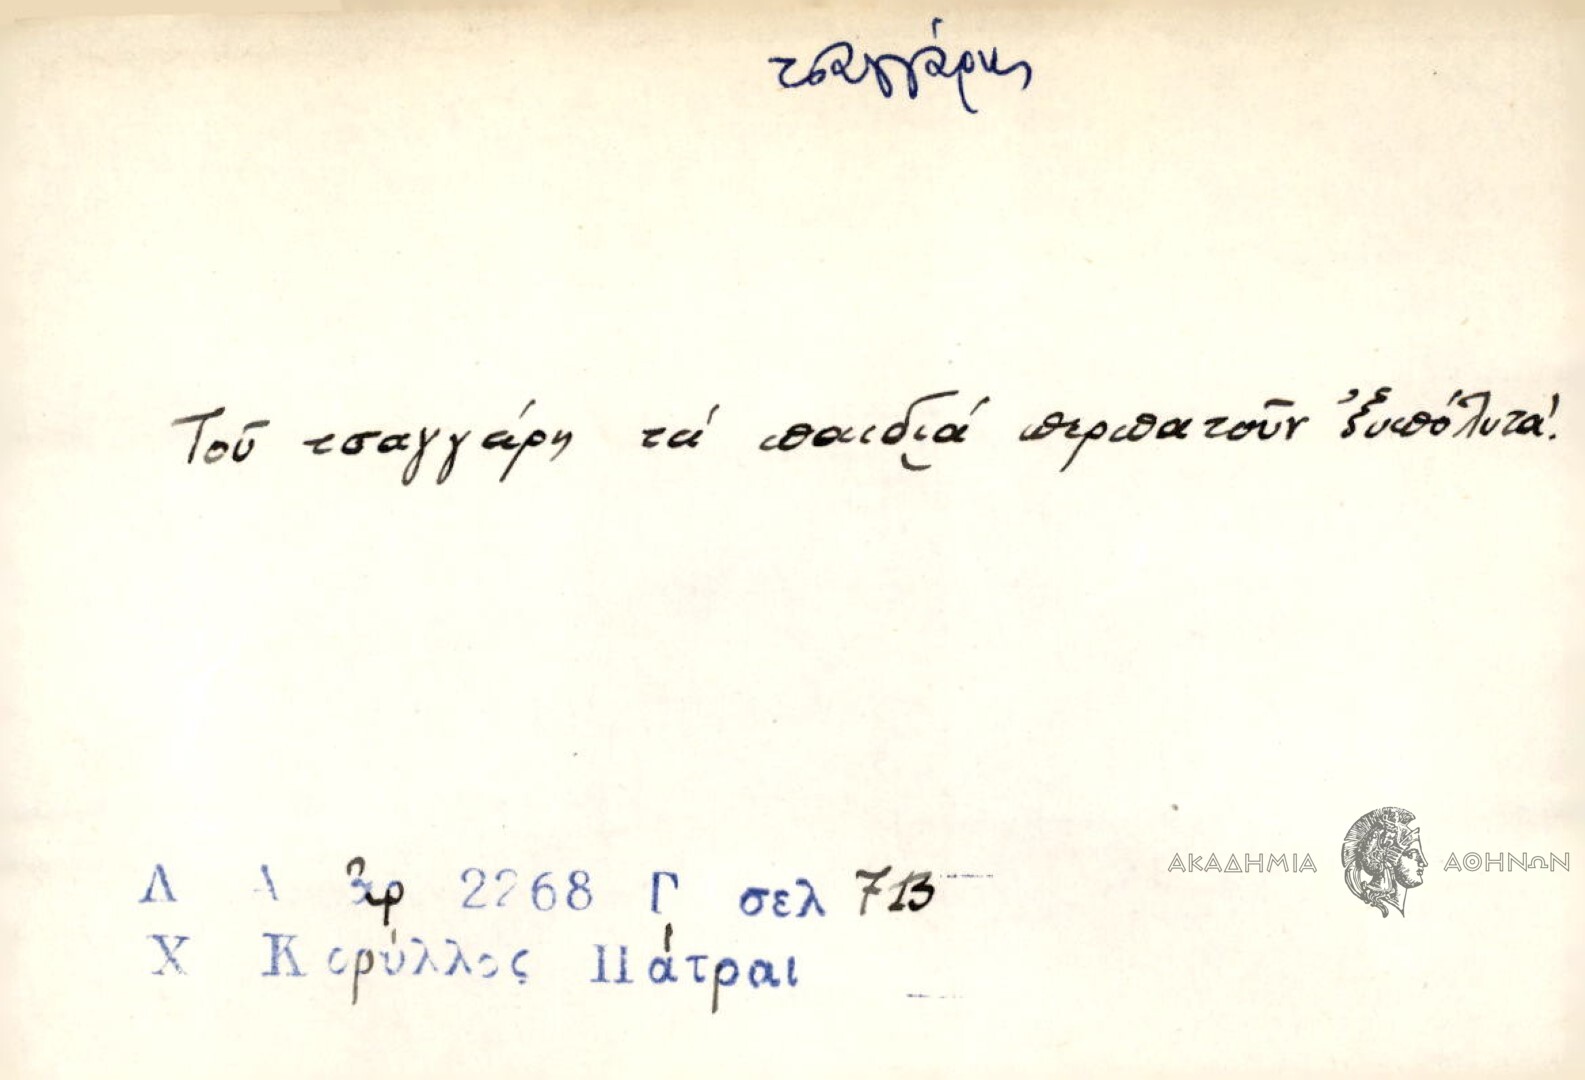 τσαγγάρης
Τοῦ τσαγγάρη τά παιδιά περπατοῦν ξυπόλυτα!
Λ Α ἀρ 2268 Γ σελ 713
ΑΚΑΔΗΜΙΑ ΑΘΗΝΩΝ
Χ Κορύλλος Πάτραι